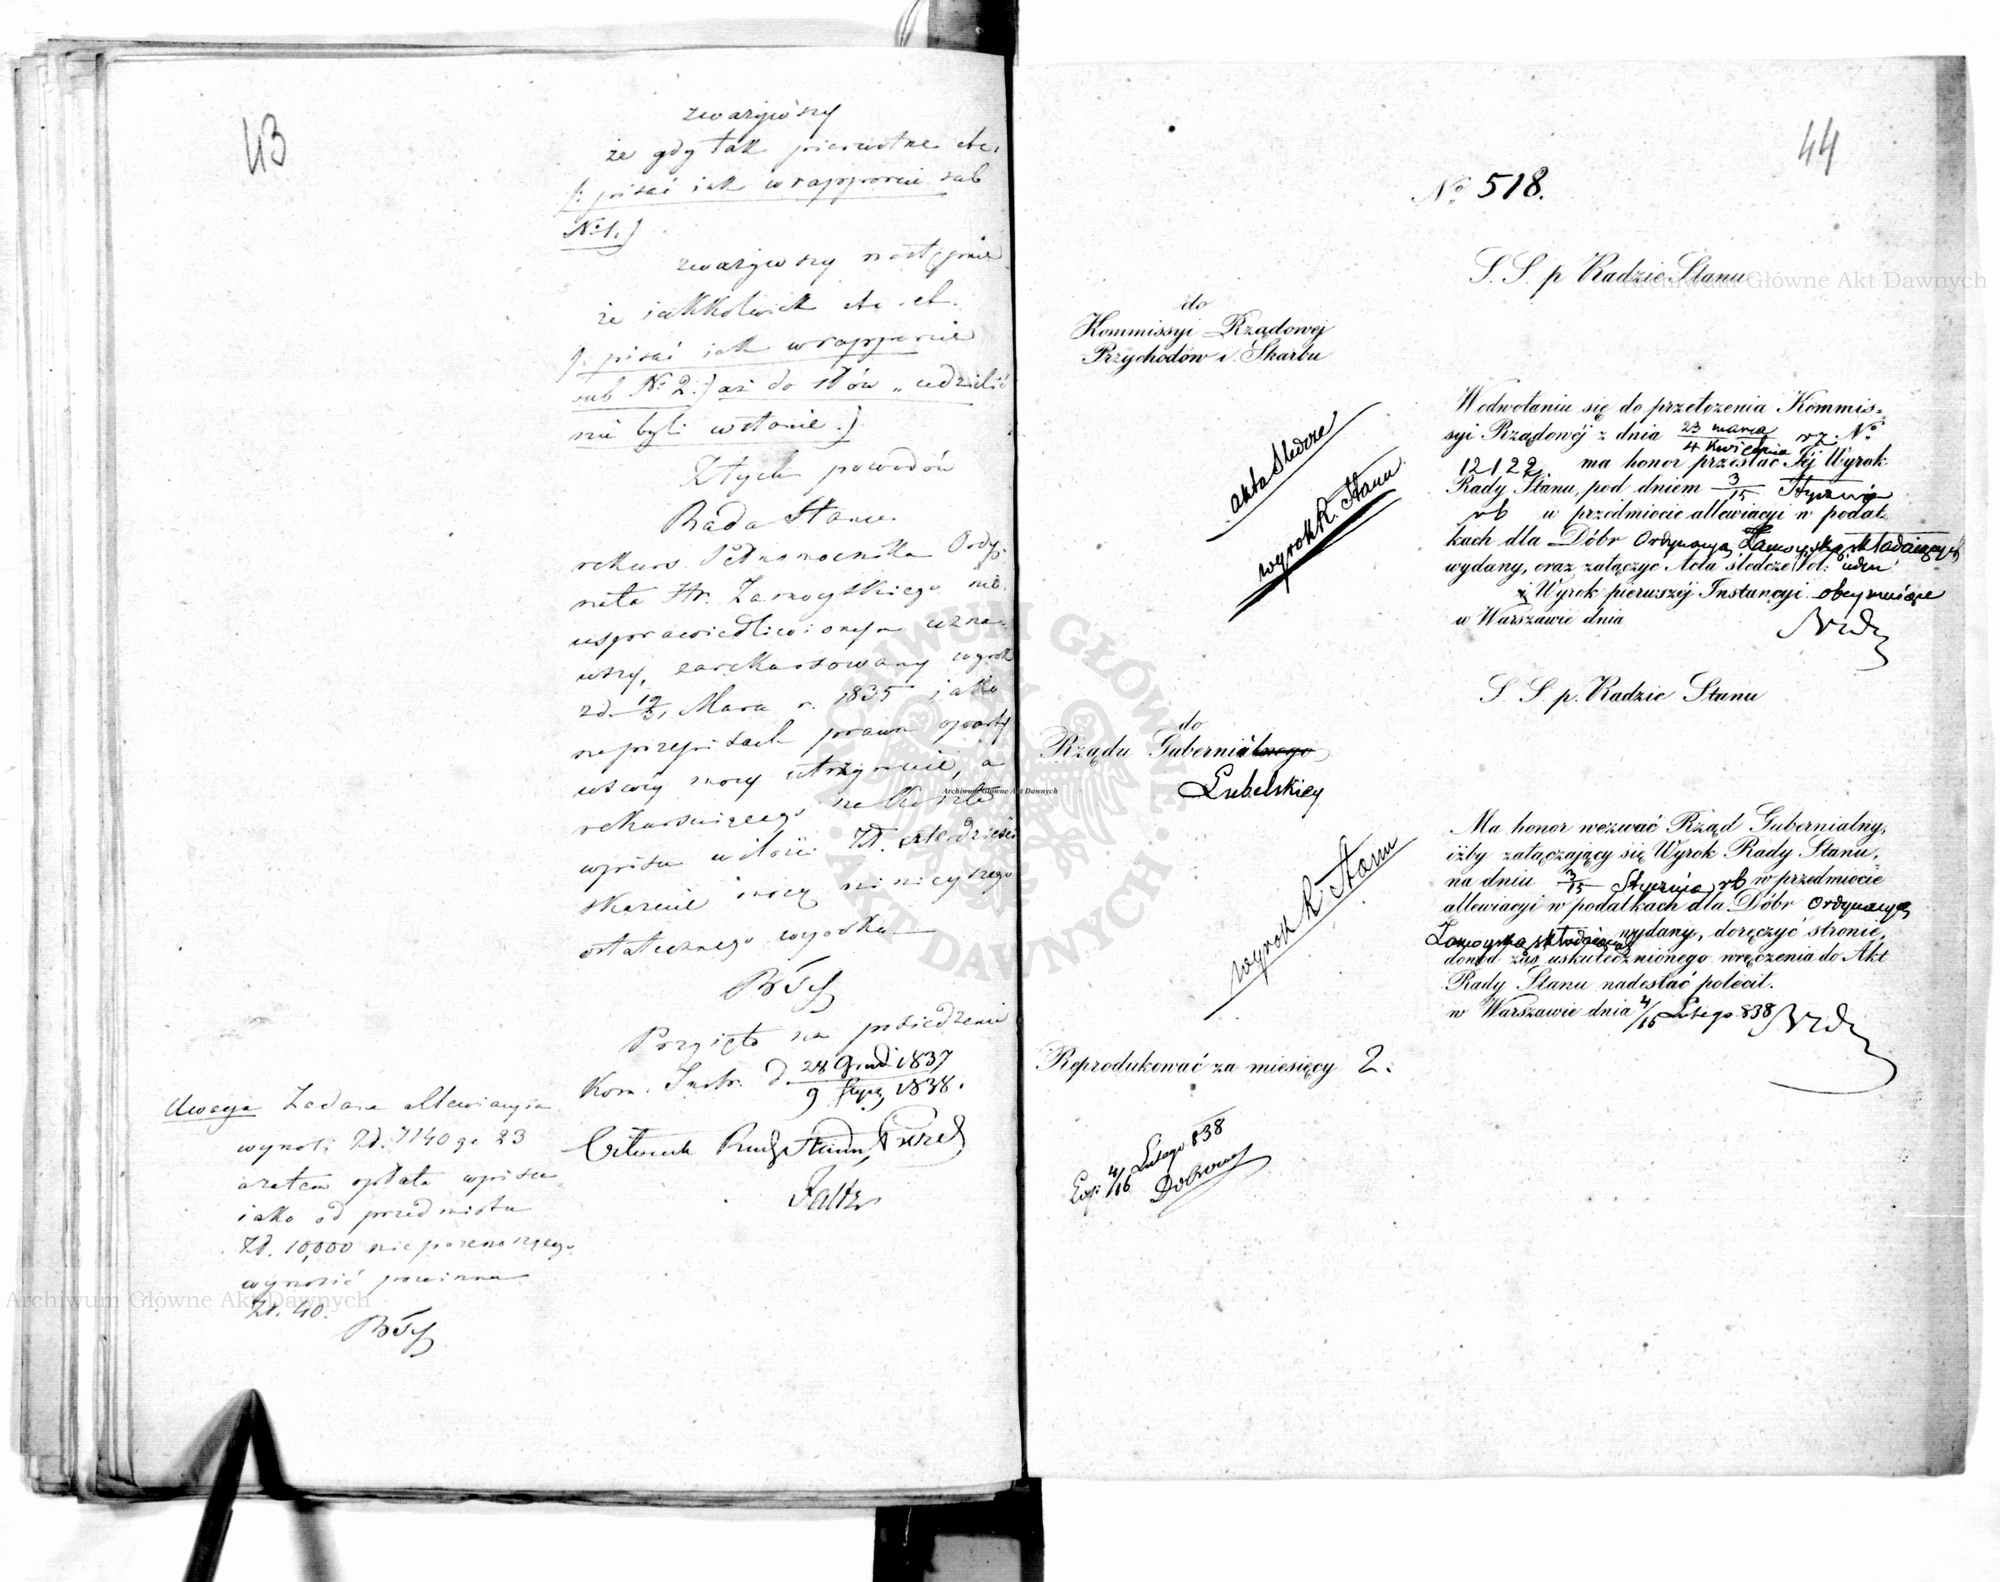 43
zważywszy
że gdy tak pierwotne etc.
/: pisać jak w rapporcie sub
No 1.)
zważywszy następnie
że jakkolwiek etc. et.
/: pisać jak w rapporcie
sub No 2:) aż do słów „udzielić
nie byli w stanie.)
Z tych powodów
Rada Stanu
rekurs Pełnomocnika Ordy-
nata Hr. Zamoyskiego nie-
usprawiedliwionym uzna-
wszy, zarekursowany wyrok
z d. 19/31 Marca r. 1835 jako
na przepisach prawa oparty
w swej mocy utrzymuie, a
rekursuiącego na koszta
wpisu w ilości Zł. czterdzieści
skazuie mocą ninieyszego
ostatecznego wyroku
Przyięto na posiedzeniu
Kom. Instr. d. 28 Grud 1837
9 Stycz 1838.
Członek Rady Stanu,
Uwaga Żądana allewiacyia
wynosi Zł. 7140 gr 23
zatem opłata wpisu
iako od przedmiotu
Zł. 10,000 nie przenoszącego
wynosić powinna
Zł. 40.
44
No 518.
S. S. p Radzie Stanu
do
Kommissyi Rządowej
Przychodów i Skarbu
akta śledcze
wyrok R. Stanu
W odwołaniu się do przełożenia Kommis=
syi Rządowéj z dnia 23 marca
4 Kwietnia rz. No
12122. ma honor przesłać Jéj Wyrok
Rady Stanu, pod dniem 3/15 Stycznia
rb w przedmiocie allewiacyi w podat
kach dla Dóbr Ordynacyą Zamoyską składaiących
wydany, oraz załączyć Akta śledcze vol:
i Wyrok pierwszéj Instancyi obeymuiące
w Warszawie dnia
S. S. p. Radzie Stanu
do
Rządu Gubernialnego
Lubelskiey
wyrok R. Stanu
Ma honor wezwać Rząd Gubernialny,
iżby załączający się Wyrok Rady Stanu,
na dniu 3/15 Stycznia rb w przedmiocie
allewiacyi w podatkach dla Dóbr Ordynacyą
Zamoyską składaiących wydany, doręczyć stronie,
dowód zaś uskutecznionego wręczenia do Akt
Rady Stanu nadesłać polecił.
w Warszawie dnia 4/16 Lutego 838
Reprodukować za miesięcy 2.
4/16 Lutego 838
Archiwum Główne Akt Dawnych
Archiwum Główne Akt Dawnych
Archiwum Główne Akt Dawnych
ARCHIWUM GŁÓWNE · AKT DAWNYCH ·